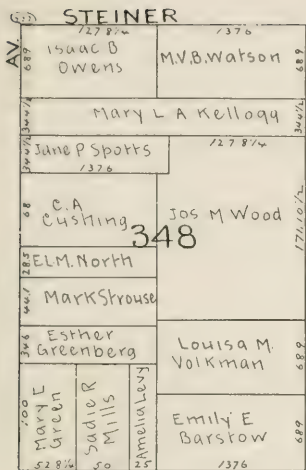 STEINER
AV.
127.8¼
1376
689
Isaac B
Owens
M.V.B.Watson
689
344½
Mary L A Kellogg
344½
344½
Jane P Spotts
1376
127.8¼
68
C.A
Cushing
Jos M Wood
171.10½
348
28.5
ELM.North
44.1
MarkStrouse
346
Esther
Greenberg
Louisa M.
Volkman
689
100
Mary E
Green
Sadie R
Mills
Amelia Levy
Emily E
Barstow
689
52 8¼
50
25
1376